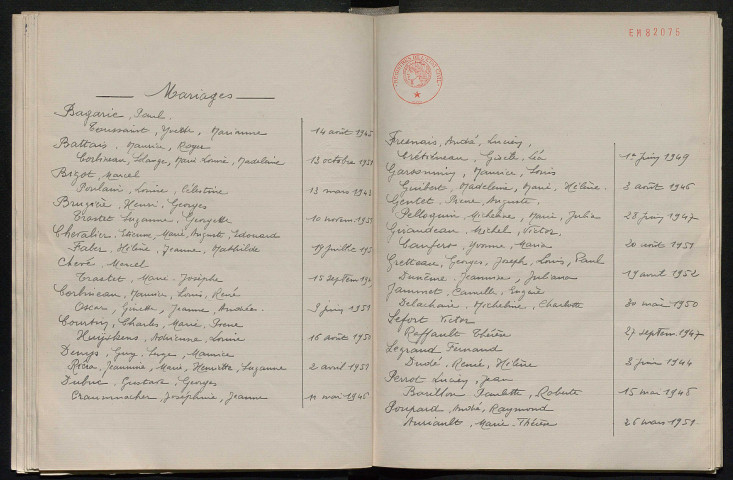 Mariages
Bagarie, Paul.
Toussaint, Yvette, Marianne 14 août 1945
Battais, Maurice, Roger
Corbineau, Solange, Marie Louise, Madeleine 13 octobre 1951
Bigot, Marcel
Poulain, Louise, Célestine 13 mars 1943
Henri, Georges
Suzanne, Georgette 10 novem. 195
Chevalier, Etienne, Marie, Auguste, Edouard
Faber, Hélène, Jeanne, Mathilde 19 juillet 195
Chéré, Marcel
Trastet, Marie, Josèphe 15 septem 194
Corbineau, Maurice, Louis, René
Oscar, Ginette, Jeanne, Andrée. 9 juin 1951
Charles, Marie, Irène
Huijskens, Adrienne, Louise 16 août 1951
Denys, Guy, Serge, Maurice
Jeannine, Marie, Henriette, Suzanne 2 avril 1951
Dubuc, Gustave, Georges
Joséphine, Jeanne 11 mai 1946
EM82075
Fresnais, André, Lucien,
Crétineau, Gisèle, Léa 1er juin 1949
Maurice, Louis
Guibert, Madeleine, Marie, Hélène. 3 août 1946
Gentet, Pierre, Auguste.
Pelloquin, Micheline, Marie, Julia 28 juin 1947
Giraudeau, Michel, Victor,
Yvonne, Maria 20 août 1951
Georges, Joseph, Louis, Paul
Jeannine, Juliana 19 avril 1952
Jammet, Camille, Eugène
Delachaire, Micheline, Charlotte 30 mai 1950
Lefort, Victor
Raffault, Thérèse 27 septem. 1947
Legrand, Fernand
Dridé, Renée, Hélène 3 juin 1944
Perrot, Lucien, Jean
Paulette, Roberte 15 mai 1946
Poupard, André, Raymond
Auriault, Marie-Thérèse 26 mars 1951